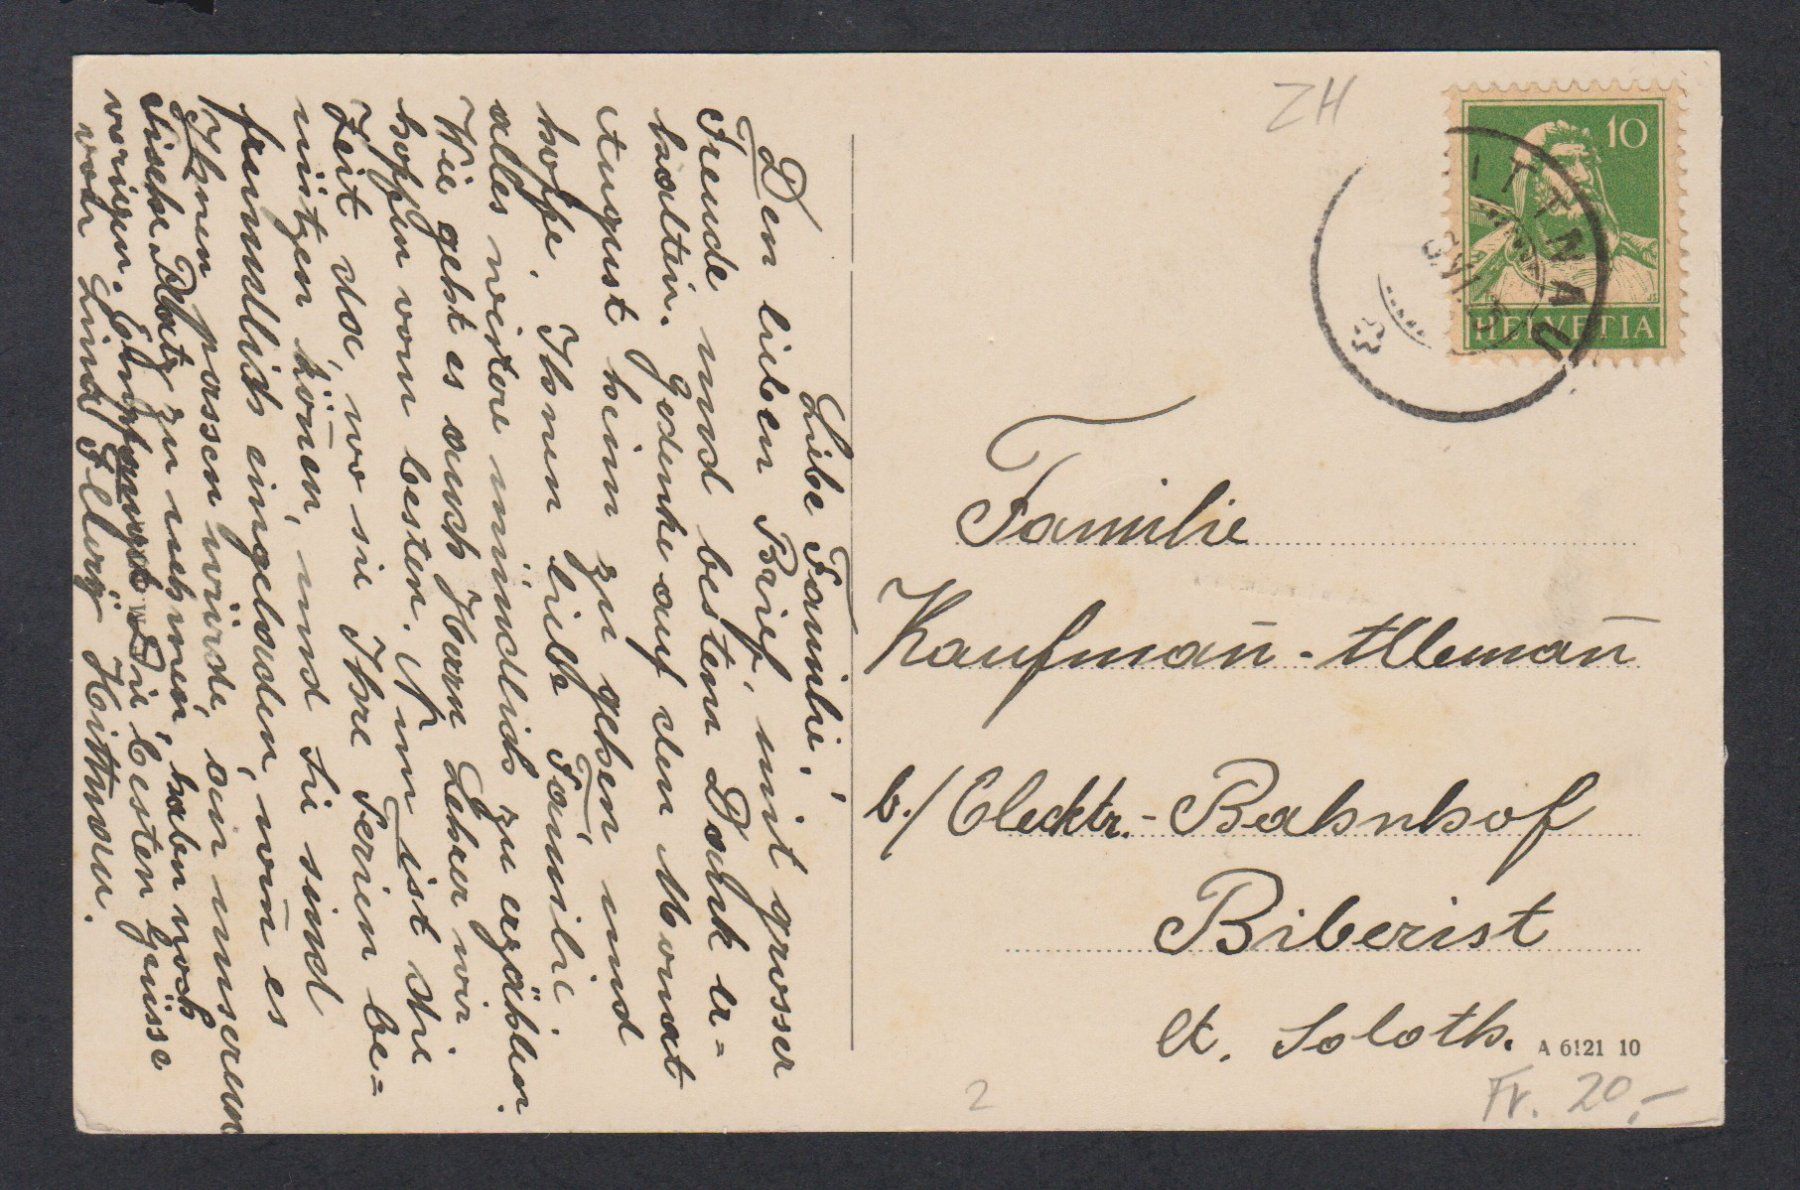 Libe Familie!
Den lieben Brief, mit grosser
Freude und besten Dank er=
halten. Gedenke auf den Monat
August heim zu gehen und
hoffe. Ihnen liebe Familie
alles nirtere mündlich zu erzählen.
Wie geht es auch Herrn Lehrer wir
hoffen vom besten. Nun ist die
Zeit da, wo sie Ihre Ferien be=
nützen kön̄en, und Sie sind
freundlich eingeladen, wen̄ es
Ihnen passen würde, an unserem
Tische Platz zu nehmen, haben noch
vorigen. Empfanget Die besten Grüsse
von Lina Hittnau.
ZH
10
HELVETIA
ITTNAU
Familie
Kaufman̄ - Alleman̄
b./ Elecktr. - Bahnhof
Biberist
Kt. Soloth.
A 6121 10
2
Fr. 20.-